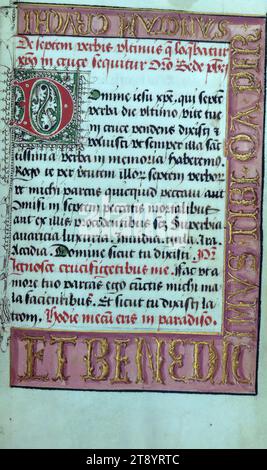 SANCTAM CRUCEM
De septem verbis ultimus q̃ loqbatur
xp̃s in cruce sequitur Or̃o Bede pb̃ri
Domine iesu xp̃e, qui septẽ
verba die ultimo, vite tue
in cruce pendens dixisti et
voluisti vt semper illa sanc
tissima verba in memoria haberem9
Rogo te per virtutem illor septem verbor
vt michi parcas quicquid peccavi aut
cõmisi in septem peccatis mortalibus
aut ex illis procedentibus scz Superbia
avaricia luxuria, Invidia, gula, Ira
Accidia, Domine sicut tu dixisti Pr̃
Ignosce crucifigẽtibus me. Fac vt a
more tuo parcas ego cũctis michi ma
la facientibus. Et sicut tu dixisti la
troni. Hodie mecũ eris in paradiso.
MUS TIBI QA PER
ET BENEDIC
alamy
Image ID: 2T8YRTC
www.alamy.com